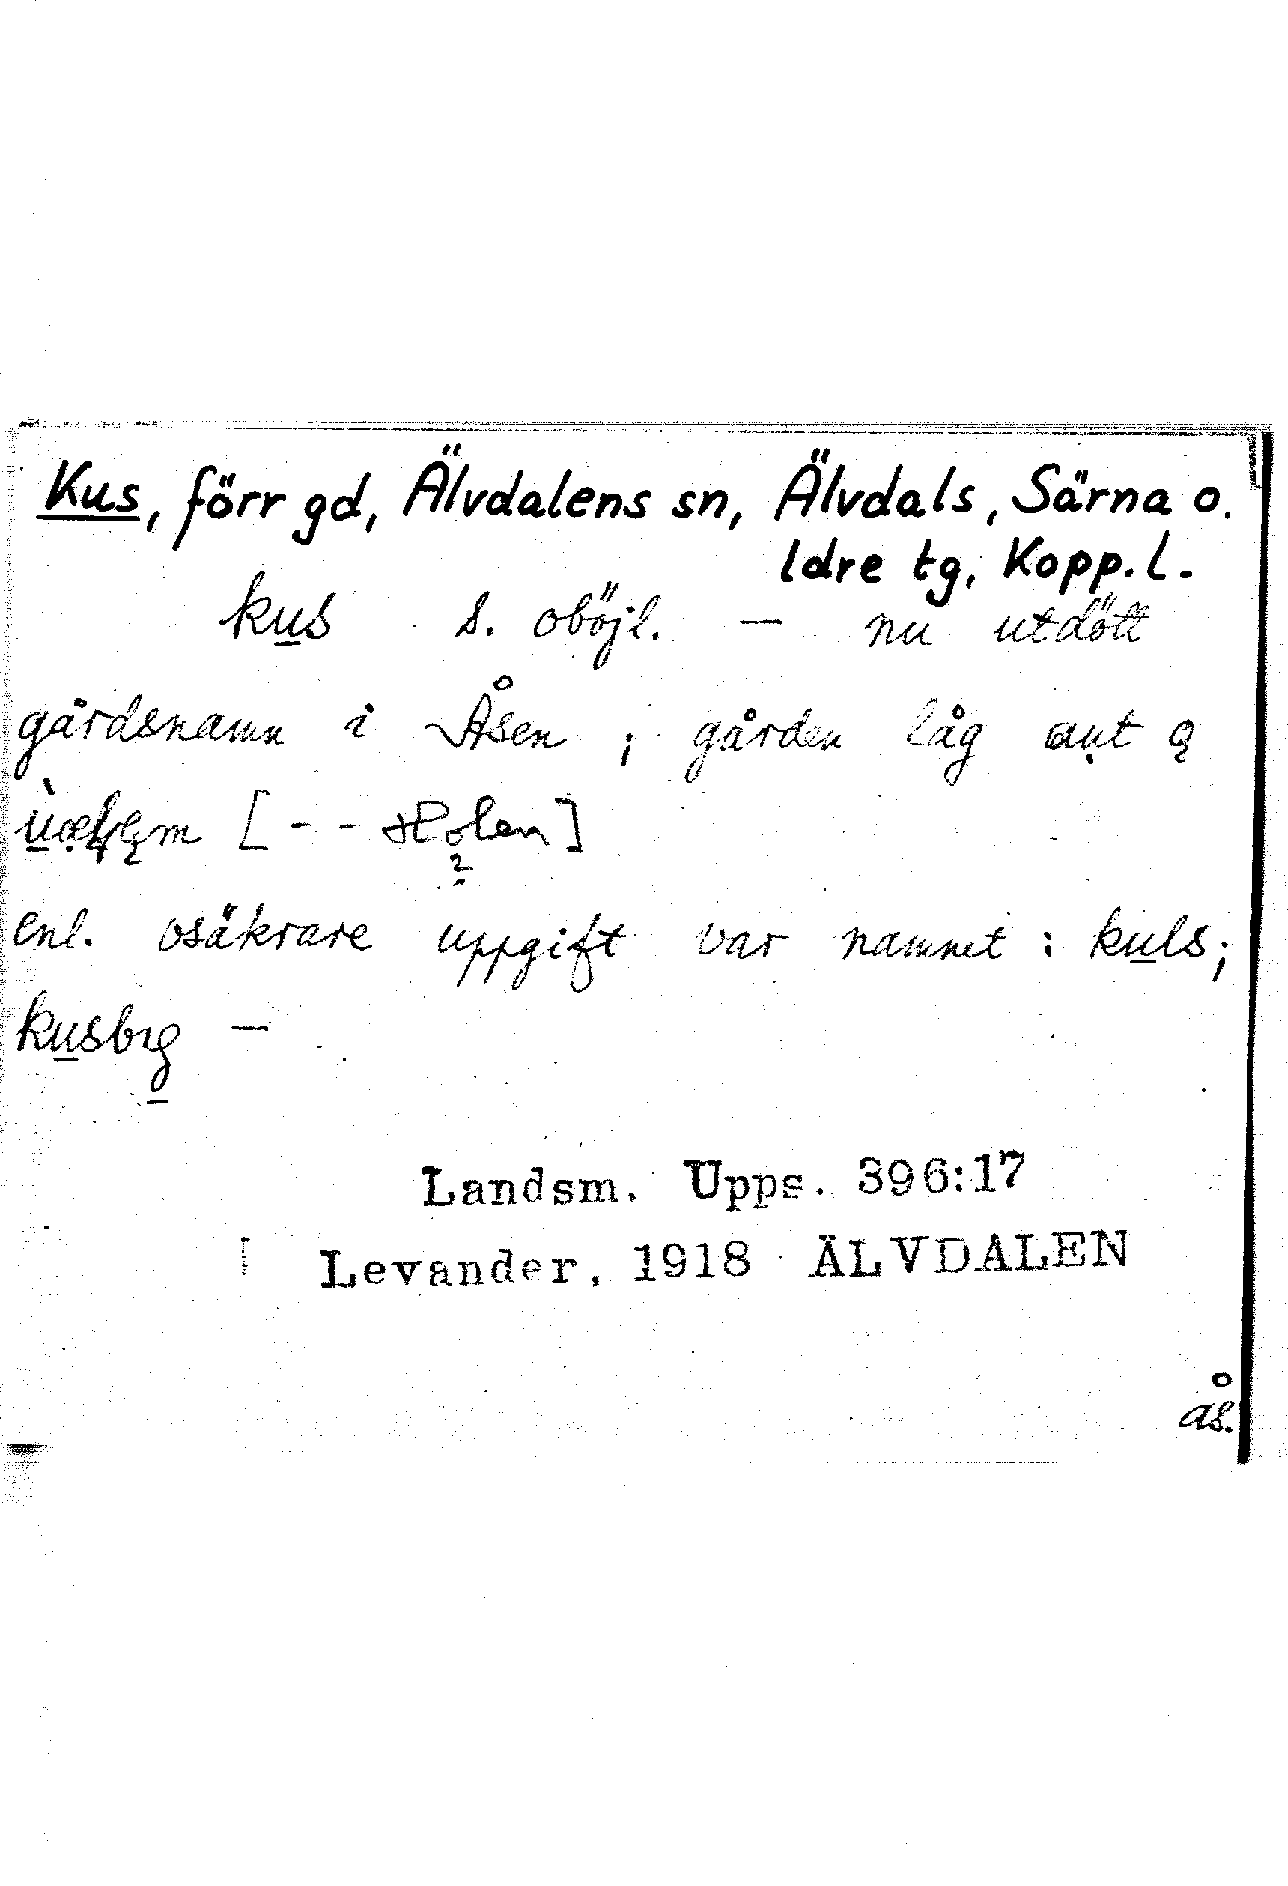 Kus, förr gd, Älvdalens sn, Älvdals, Särna o.
Idre tg, Kopp.l.
kus s. oböjl. — nu utdött
gårdsnamn i Åsen ; gården låg
[ - - Holen]
enl. osäkrare uppgift var namnet : kuls;
—
Landsm. Upps. 396:17
Levander, 1918 ÄLVDALEN
ås.